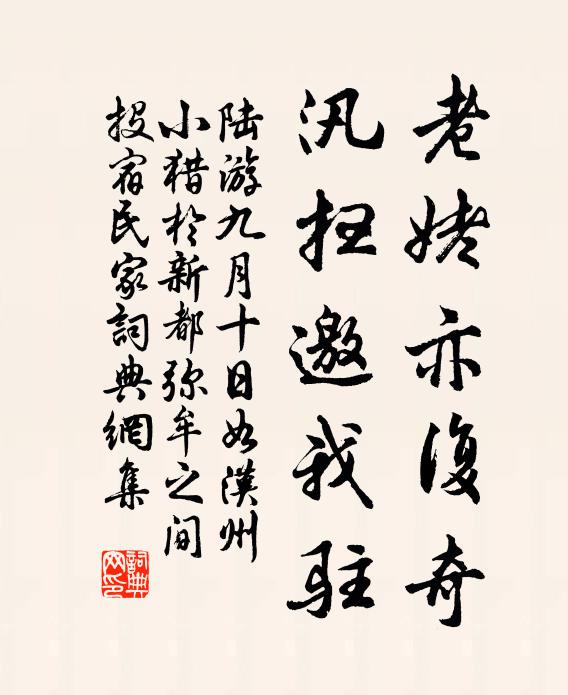 老姥亦復奇
汛掃邀我駐
陆游九月十日如漢州
小猎於新都弥牟之间
投宿民家詞典網集
詞典網印